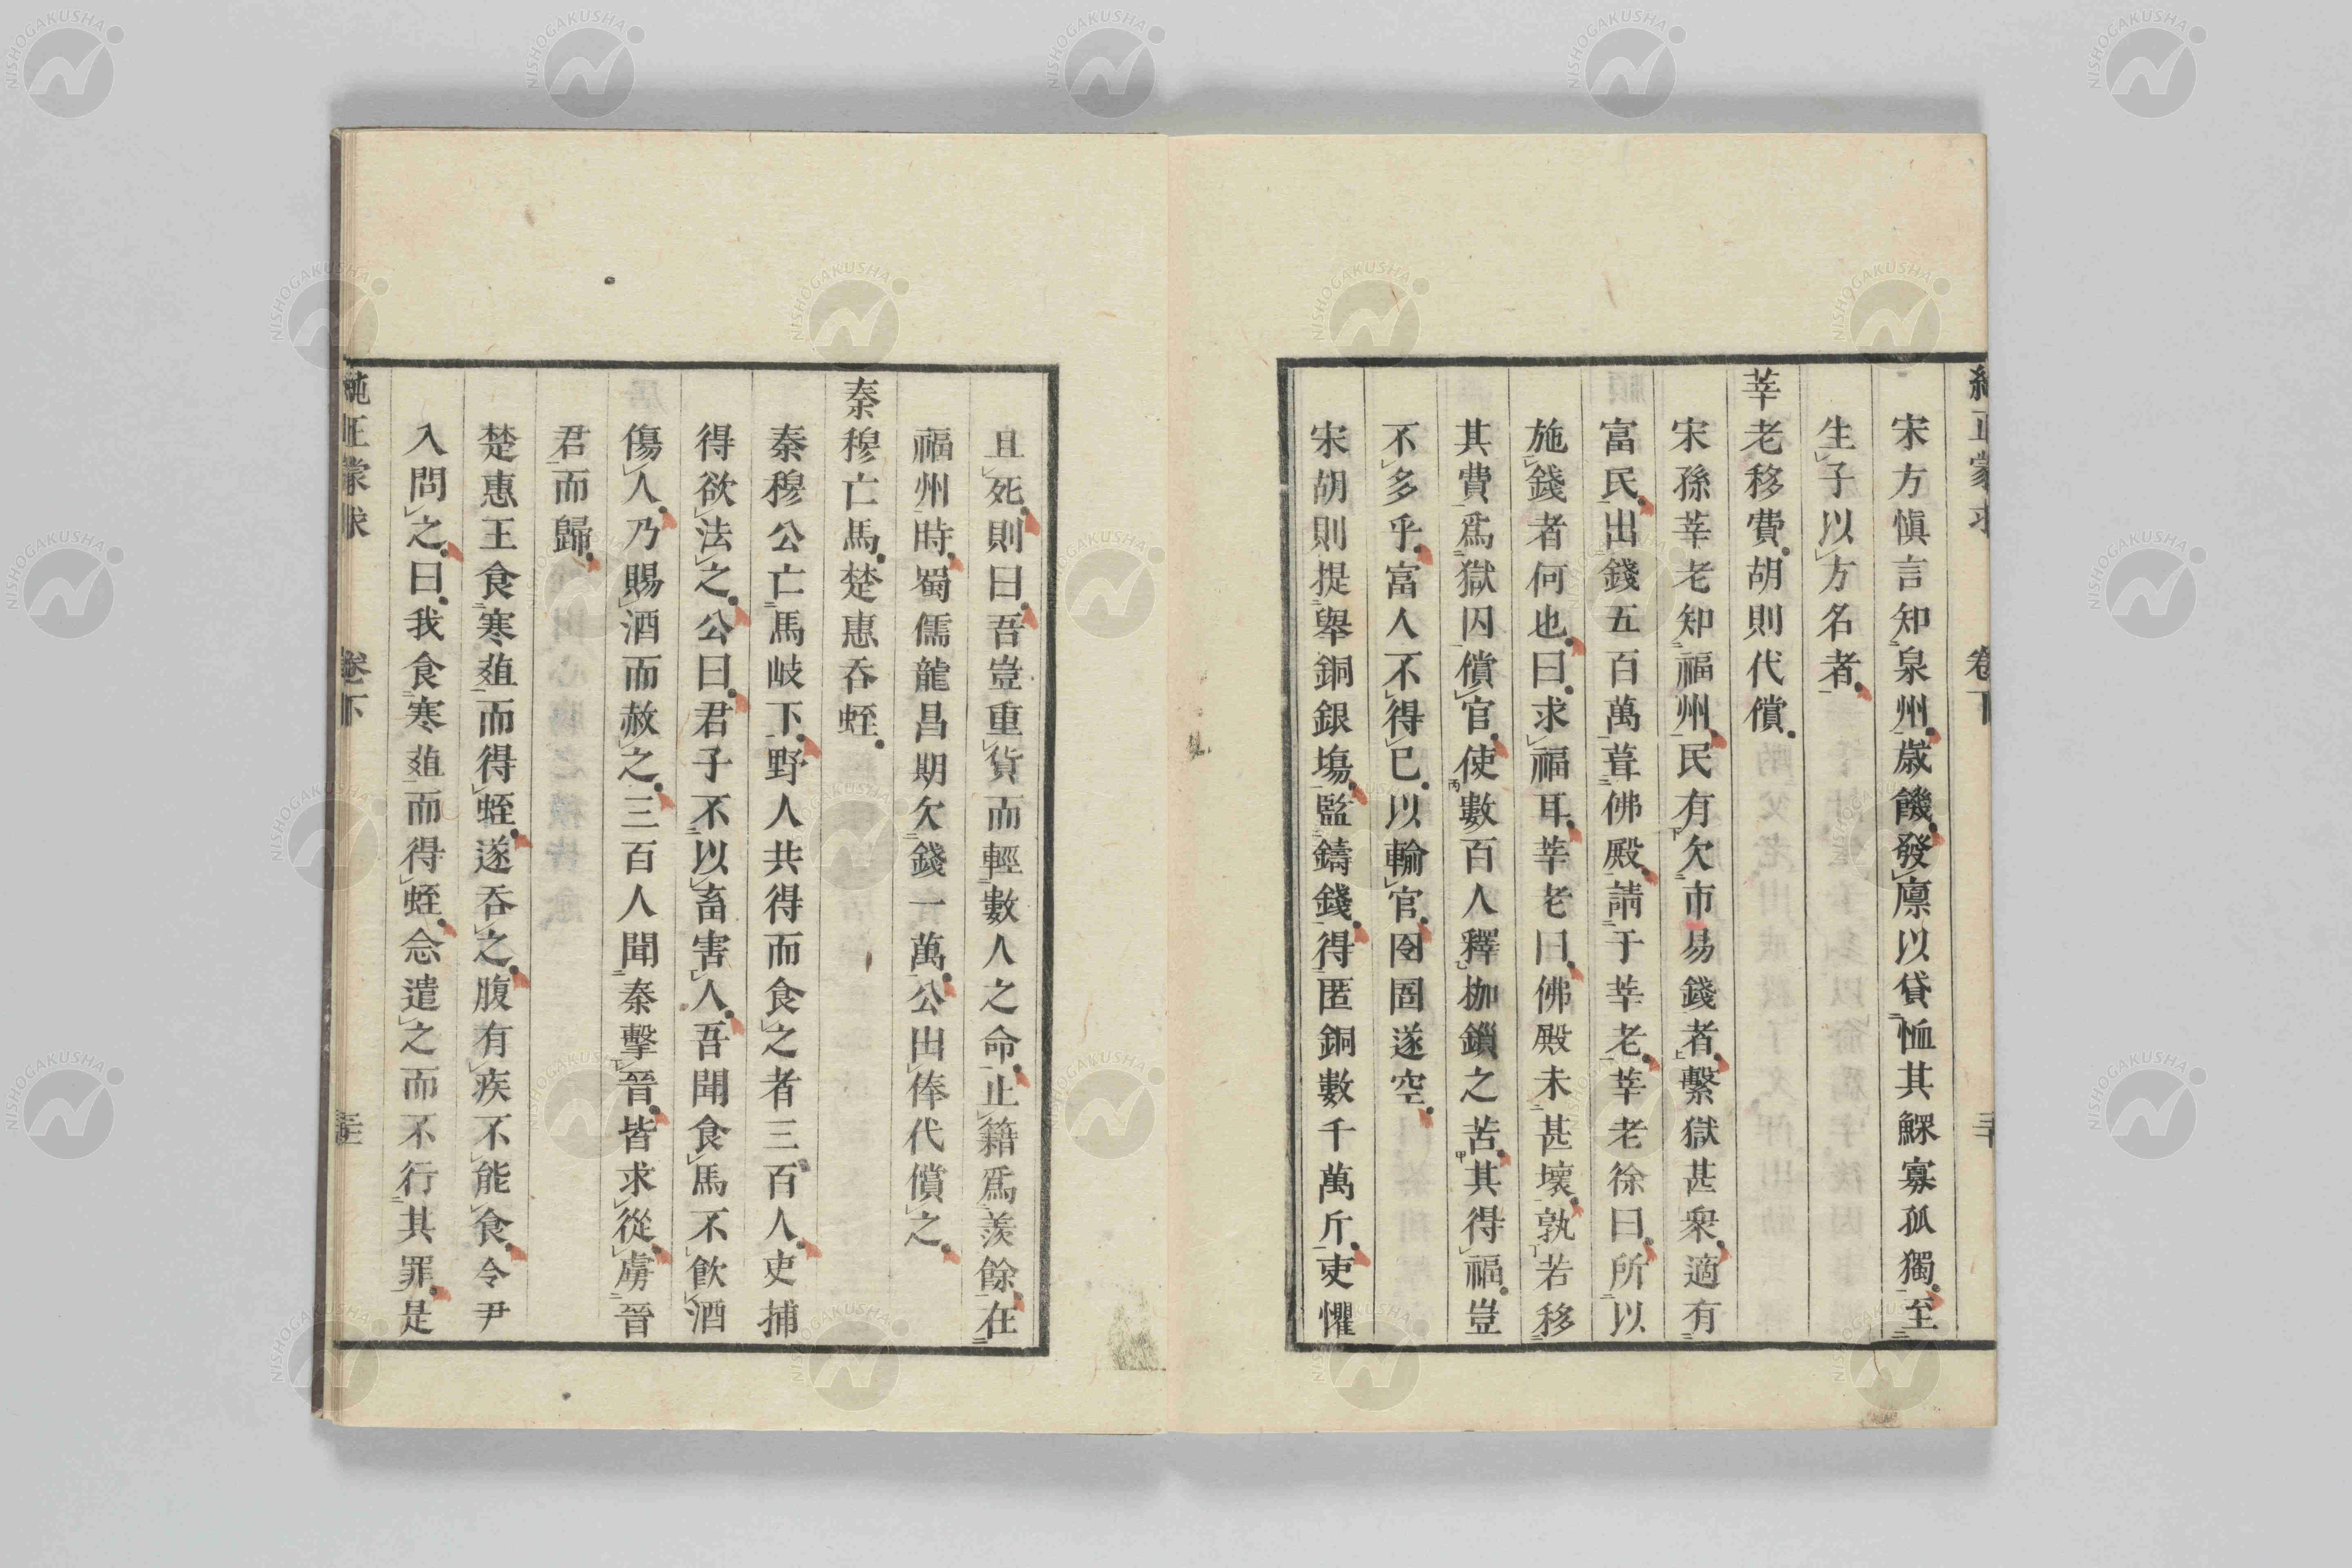 純正蒙求 卷下
宋方愼言知泉州歲饑發廩以貸恤其鰥寡孤獨至
生子以方名者
莘老移費胡則代償
宋孫莘老知福州民有欠市易錢者繫獄甚衆適有
富民出錢五百萬葺佛殿請于莘老莘老徐曰所以
施錢者何也曰求福耳莘老曰佛殿未甚壞孰若移
其費爲獄囚償官使數百人釋枷鎖之苦其得福豈
不多乎富人不得已以輸官囹圄遂空
宋胡則提舉銅銀塲監鑄錢得匿銅數千萬斤吏懼
且死則曰吾豈重貨而輕數人之命止籍爲羨餘在
福州時蜀儒龍昌期欠錢一萬公出俸代償之
秦穆亡馬楚惠吞蛭
秦穆公亡馬岐下野人共得而食之者三百人吏捕
得欲法之公曰君子不以畜害人吾聞食馬不飮酒
傷人乃賜酒而赦之三百人聞秦擊晉皆求從虜晉
君而歸
楚惠王食寒葅而得蛭遂吞之腹有疾不能食令尹
入問之曰我食寒葅而得蛭念遣之而不行其罪是
純正蒙求 卷下
NISHOGAKUSHA